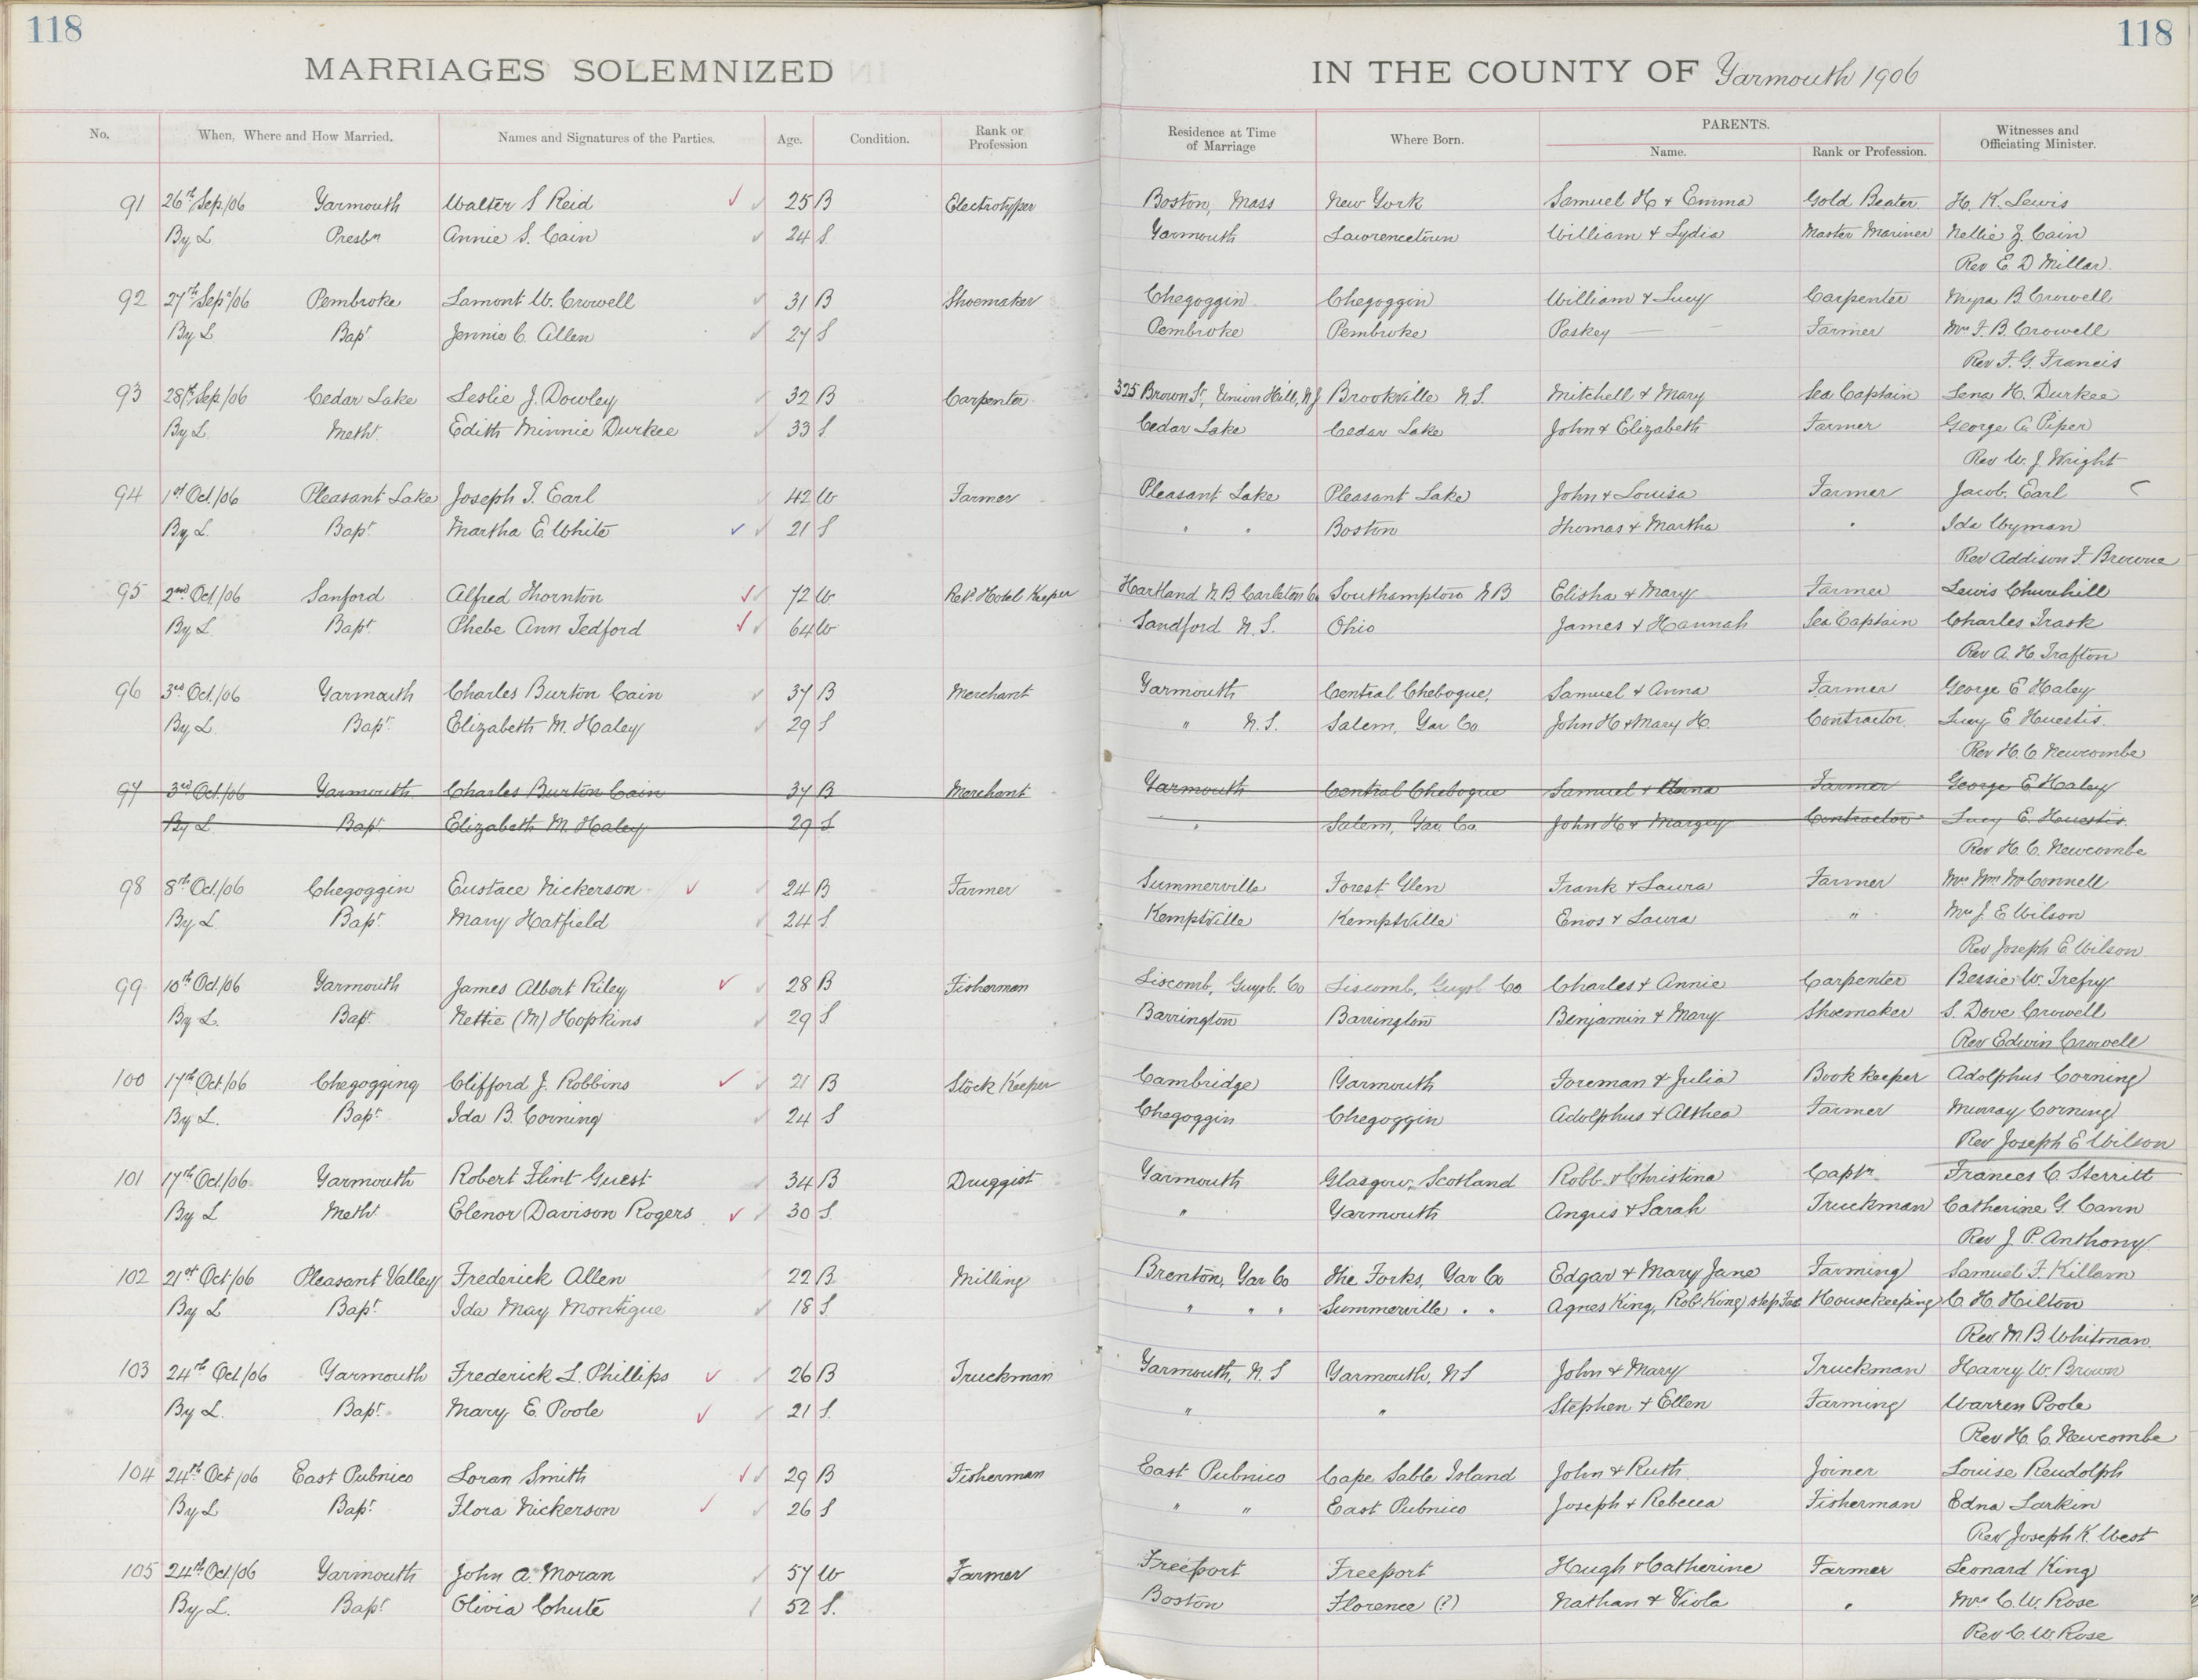 118 118
MARRIAGES SOLEMNIZED IN THE COUNTY OF Yarmouth 1906
No. When, Where and How Married. Names and Signatures of the Parties. Age. Condition. Rank or Profession Residence at Time of Marriage Where Born. PARENTS. Name. Rank or Profession. Witnesses and Officiating Minister.
91 26th Sep/06 Yarmouth Walter S Reid 25 B Electrotyper Boston, Mass New York Samuel H + Emma Gold Beater H. K. Lewis
By L Presbn Annie S. Cain 24 S. Yarmouth Lawrencetown William + Lydia Master Mariner Nellie Z. Cain
Rev E. D Millar.
92 27th Sep/06 Pembroke Lamont W. Crowell 31 B Shoemaker Chegoggin Chegoggin William + Lucy Carpenter Myra B Crowell
By L Bapt Jennie C. Allen 27 S Pembroke Pembroke Paskey — Farmer Mrs F. B. Crowell
Rev F. G. Francis
93 28th Sep/06 Cedar Lake Leslie J. Dowley 32 B Carpenter 325 Brown St, Union Hill, NJ Brookville N.S. Mitchell + Mary Sea Captain Lena H. Durkee
By L Metht. Edith Minnie Durkee 33 S. Cedar Lake Cedar Lake John + Elizabeth Farmer George A. Piper
Rev W. J. Wright
94 1st Oct./06 Pleasant Lake Joseph I. Earl 42 W Farmer Pleasant Lake Pleasant Lake John + Louisa Farmer Jacob. Earl
By L. Bapt. Martha E. White 21 S " " Boston Thomas + Martha " Ida Wyman
Rev Addison F. Browne
95 2nd Oct./06 Sanford Alfred Thornton 72 W. Retd Hotel Keeper Hartland N.B Carleton Co Southampton N B Elisha + Mary Farmer Lewis Churchill
By L. Bapt Phebe Ann Tedford 64 W Sandford N.S. Ohio James + Hannah Sea Captain Charles Trask
Rev A. H. Trafton
96 3rd Oct./06 Yarmouth Charles Burton Cain 37 B Merchant Yarmouth Central Chebogue, Samuel + Anna Farmer George E Haley
By L. Bapt Elizabeth M. Haley 29 S " N.S. Salem, Yar Co John H + Mary H. Contractor Lucy E Huestis.
Rev H. C Newcombe
97 3rd Oct./06 Yarmouth Charles Burton Cain 37 B Merchant Yarmouth Central Chebogue Samuel + Anna Farmer George E Haley
By L. Bapt Elizabeth M. Haley 29 S " Salem, Yar Co. John H + Margey Contractor Lucy E. Huestis.
Rev H. C. Newcombe
98 8th Oct./06 Chegoggin Eustace Nickerson 24 B Farmer Summerville Forest Glen Frank + Laura Farmer Mrs Wm McConnell
By L. Bapt. Mary Hatfield 24 S. Kemptville Kemptville Enos + Laura " Mrs J. E Wilson
Rev Joseph E. Wilson
99 10th Oct./06 Yarmouth James Albert Riley 28 B Fisherman Liscomb, Guysb. Co Liscomb, Guysb Co Charles + Annie Carpenter Bessie W. Trefry
By L. Bapt. Nettie (M) Hopkins 29 S Barrington Barrington Benjamin + Mary Shoemaker S. Dove Crowell
Rev Edwin Crowell
100 17th Oct./06 Chegogging Clifford J. Robbins 21 B Stock Keeper Cambridge Yarmouth Foreman + Julia Book keeper Adolphus Corning
By L. Bapt Ida B. Corning 24 S Chegoggin Chegoggin Adolphus + Althea Farmer Murray Corning
Rev Joseph E Wilson
101 17th Oct./06 Yarmouth Robert Flint Guest 34 B Druggist Yarmouth Glasgow, Scotland Robb. + Christina Captn Frances C. Sterritt
By L Metht. Elenor Davison Rogers 30 S. " Yarmouth Angus + Sarah Truckman Catherine G. Cann
Rev J. P. Anthony
102 21st Oct/06 Pleasant Valley Frederick Allen 22 B. Milling Brenton, Yar Co The Forks, Yar Co Edgar + Mary Jane Farming Samuel F. Killam
By L Bapt. Ida May Montigue 18 S. " " " Summerville " " Agnes King, Rob. King step Fat. Housekeeping C. H. Hilton
Rev M B Whitman.
103 24th Oct./06 Yarmouth Frederick L. Phillips 26 B Truckman Yarmouth, N. S Yarmouth, NS John + Mary Truckman Harry W. Brown
By L. Bapt. Mary E. Poole 21 S. " " Stephen + Ellen Farming Warren Poole
Rev H. C. Newcombe
104 24th Oct/06 East Pubnico Loran Smith 29 B Fisherman East Pubnico Cape Sable Island John + Ruth. Joiner Louise Reudolph
By L Bapt. Flora Nickerson 26 S " " East Pubnico Joseph + Rebecca Fisherman Edna Larkin
Rev Joseph K. West
105 24th Oct./06 Yarmouth John A. Moran 57 W Farmer Freeport Freeport Hugh + Catherine Farmer Leonard King
By L. Bapt Olivia Chute 52 S. Boston Florence (?) Nathan + Viola " Mrs C. W. Rose
Rev C. W. Rose